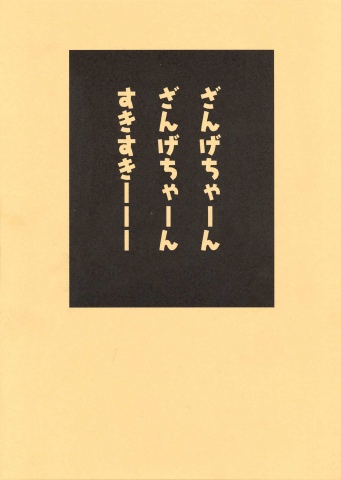 ざんげちゃーん
ざんげちゃーん
すきすきーーー